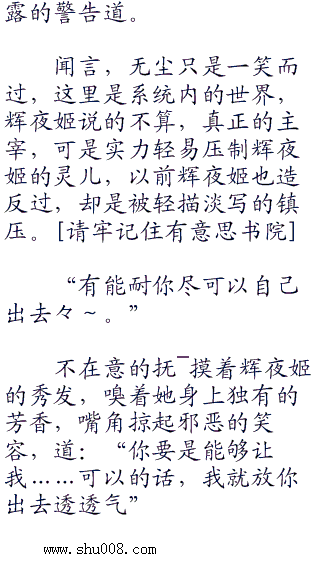 露的警告道。
闻言，无尘只是一笑而
过，这里是系统内的世界，
辉夜姬说的不算，真正的主
宰，可是实力轻易压制辉夜
姬的灵儿，以前辉夜姬也造
反过，却是被轻描淡写的镇
压。[请牢记住有意思书院]
“有能耐你尽可以自己
出去々～。”
不在意的抚‾摸着辉夜姬
的秀发，嗅着她身上独有的
芳香，嘴角掠起邪恶的笑
容，道：“你要是能够让
我……可以的话，我就放你
出去透透气”
www.shu008.com